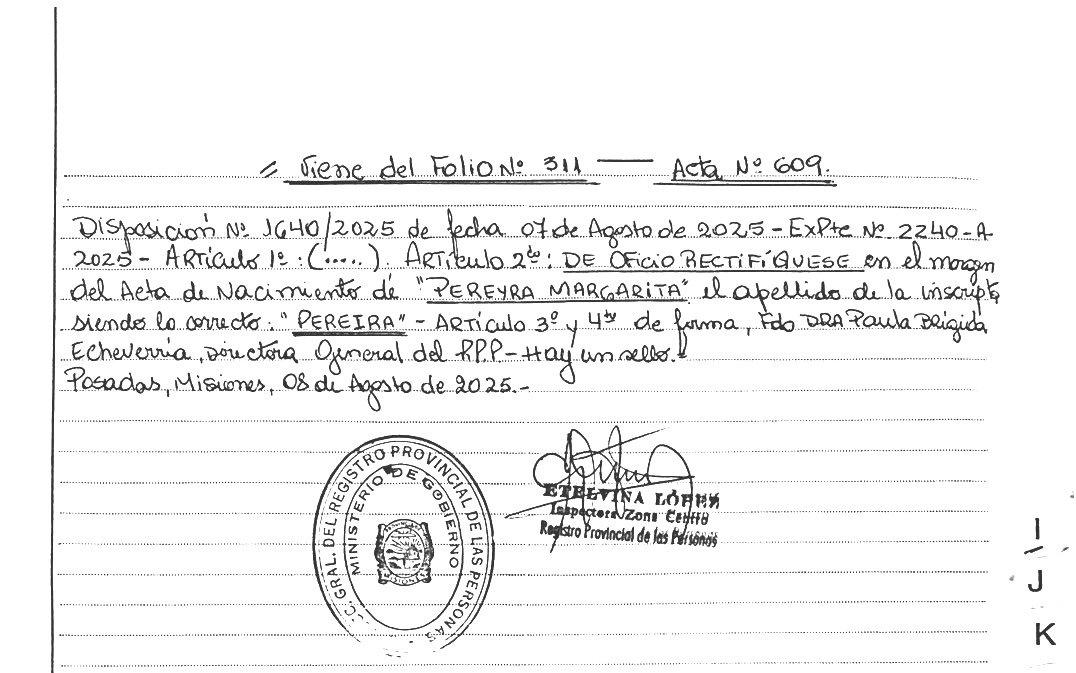 // Viene del Folio Nº 311 — Acta Nº 609.
Disposición Nº 1640/2025 de fecha 07 de Agosto de 2025 - ExPte Nº 2240-A-
2025 - ARTículo 1º: (.....). ARTículo 2do: DE OFicio RECTIFÍQUESE en el margen
del Acta de Nacimiento de "PEREYRA MARGARITA" el apellido de la inscripta
siendo lo correcto: "PEREIRA" - ARTículo 3º y 4to de forma, Fdo DRA Paula Brígida
Echeverría, Directora General del R.P.P - Hay un sello.
Posadas, Misiones, 08 de Agosto de 2025.-
C. GRAL. DEL REGISTRO PROVINCIAL DE LAS PERSONAS
MINISTERIO DE GOBIERNO
ETELVINA LÓPEZ
Inspectora Zona Centro
Registro Provincial de las Personas
I
J
K